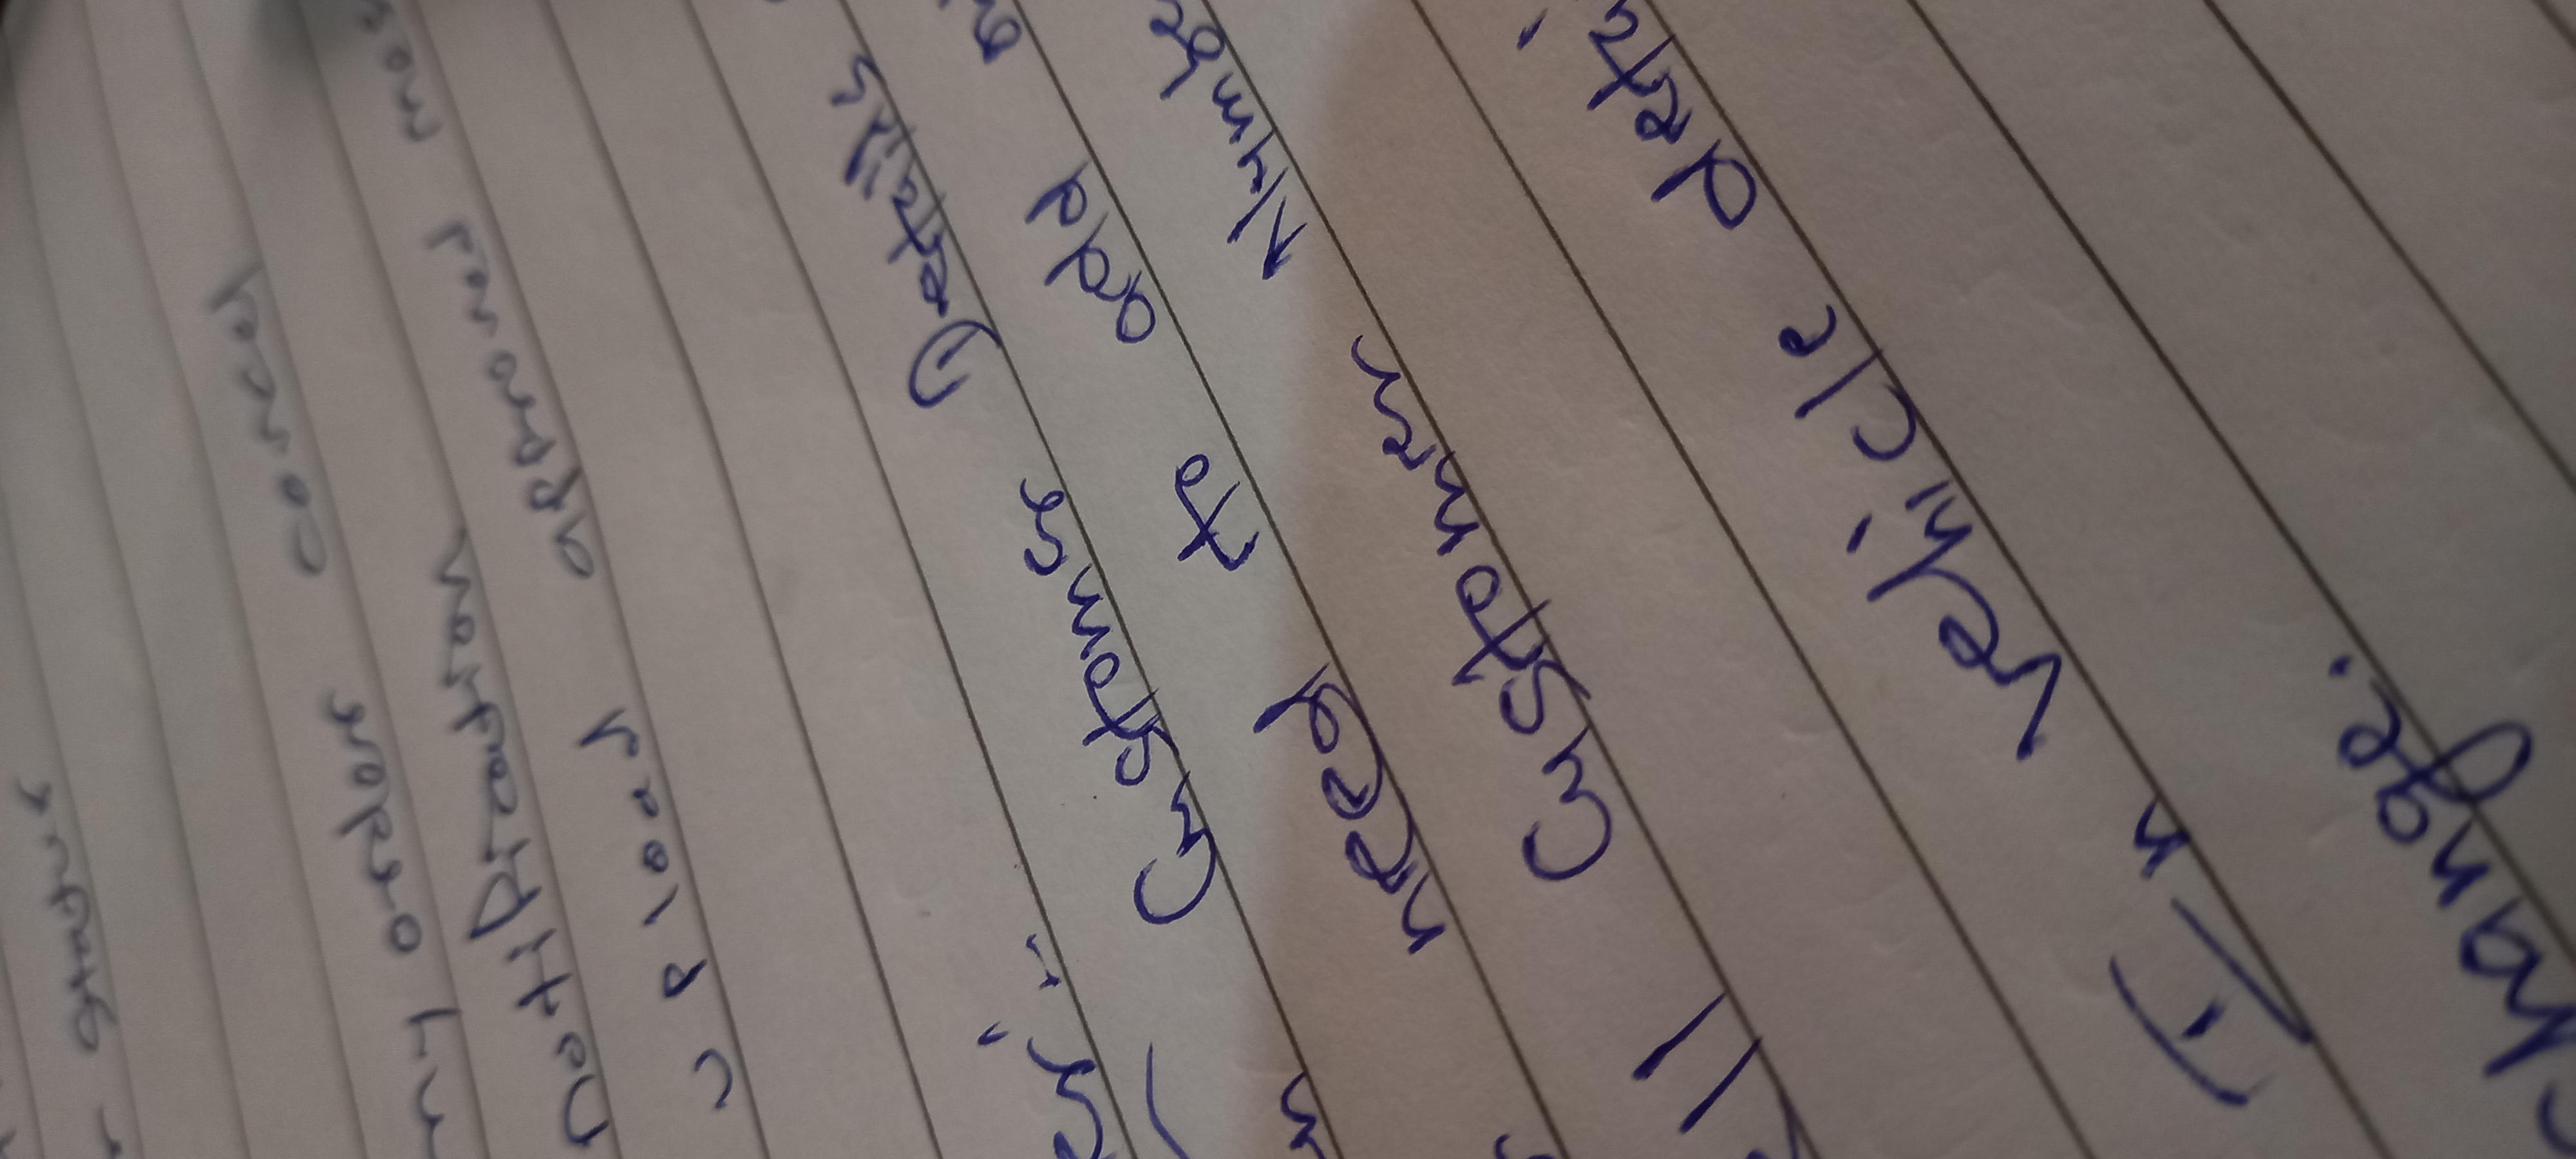 status
my orders cancel
notification
upload approved
Customer Details
need to add
Customer Numbe
In vehicle detai
change.